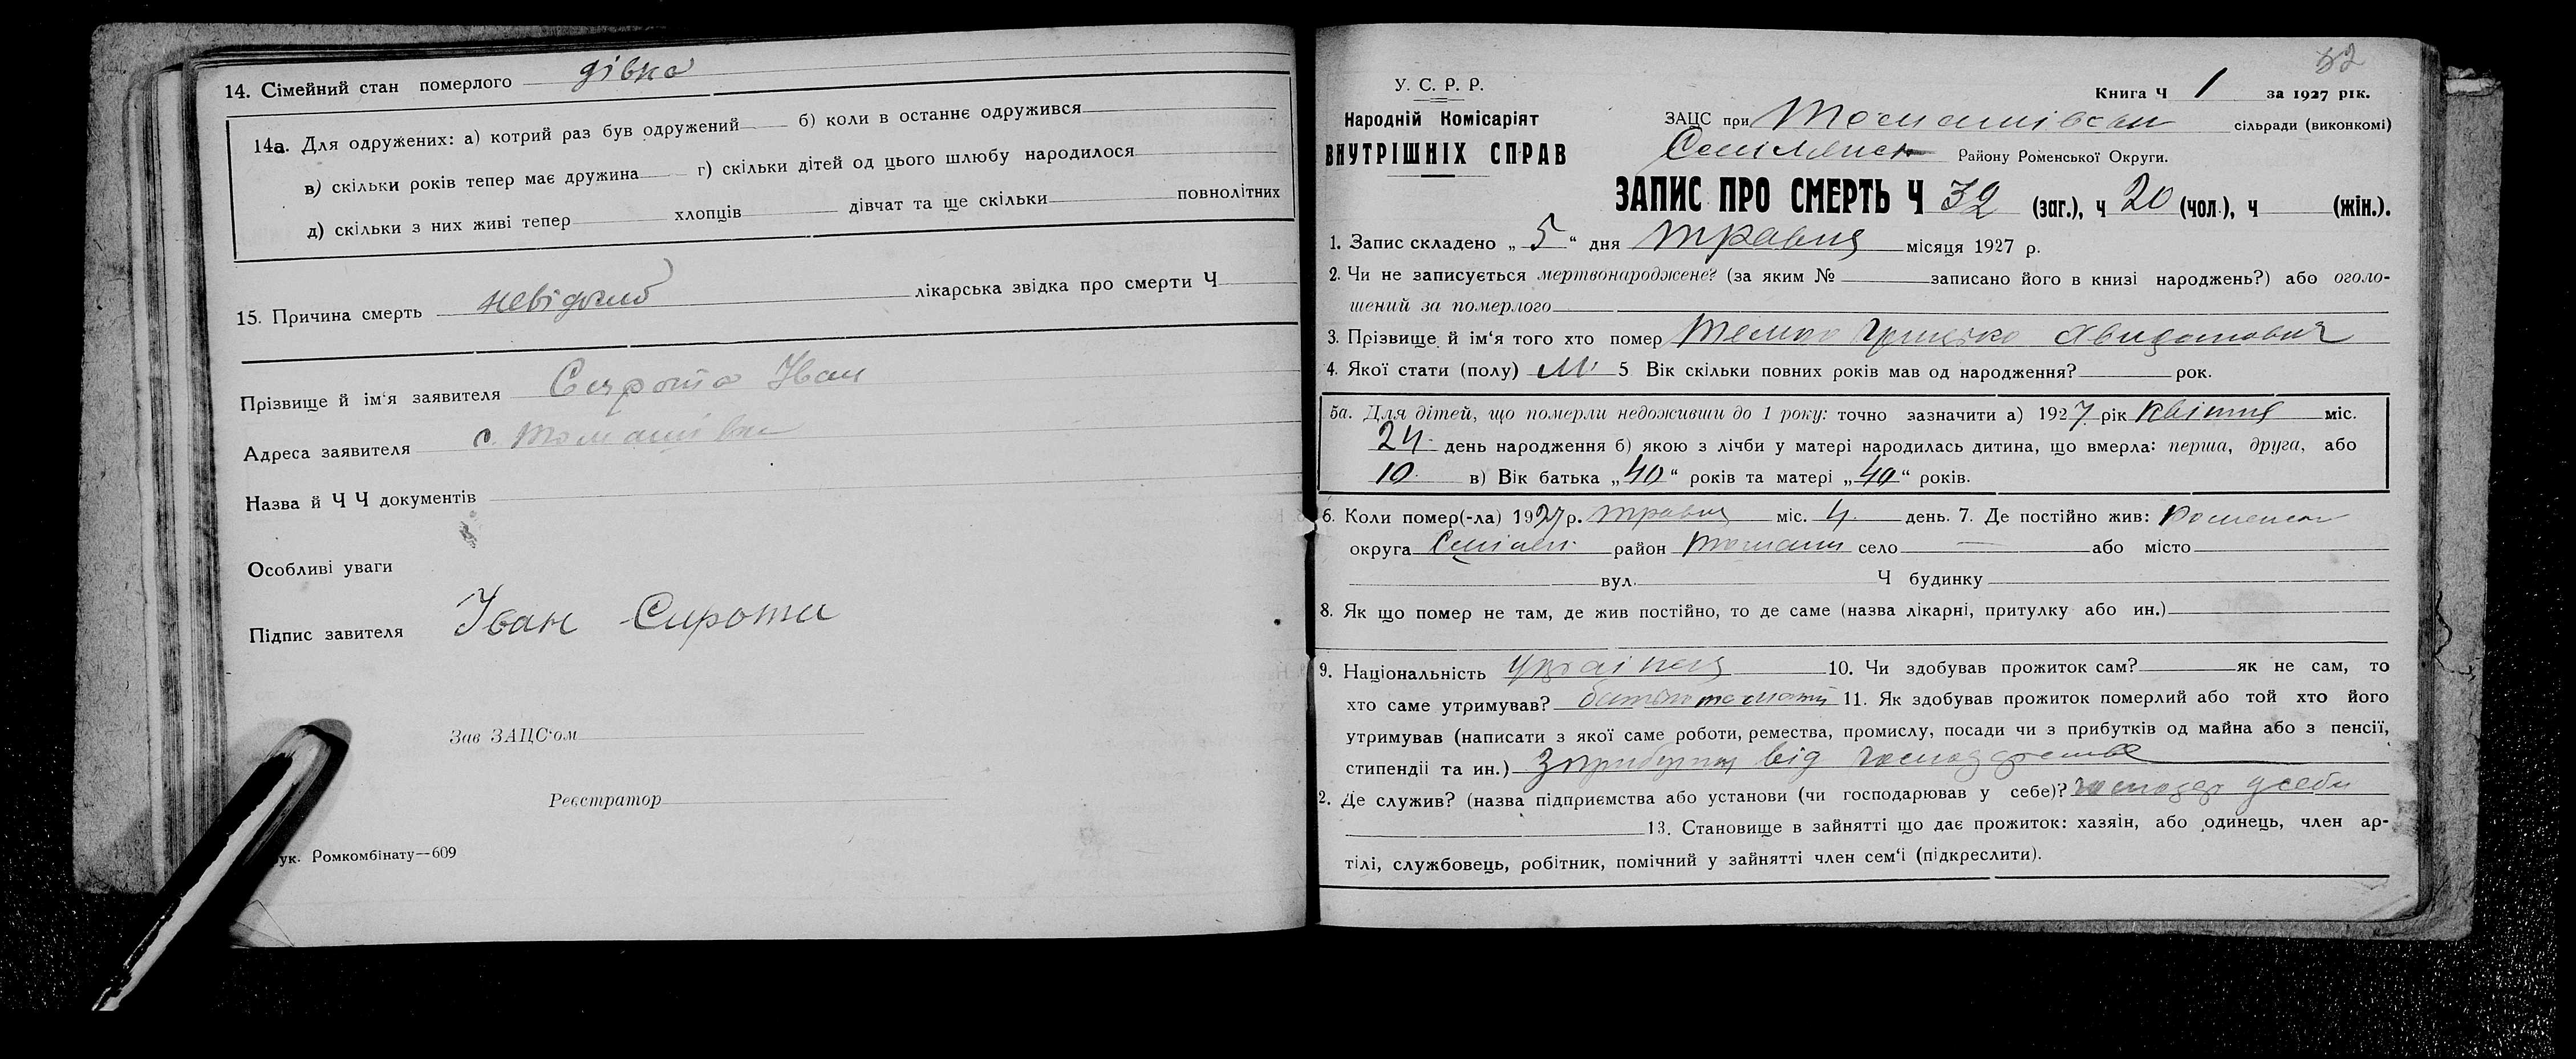 14. Сімейний стан померлого дівка
14а. Для одружених: а) котрий раз був одружений б) коли в останнє одружився
в) скільки років тепер має дружина г) скільки дітей од цього шлюбу народилося
д) скільки з них живі тепер хлопців дівчат та ще скільки повнолітних
15. Причина смерть невідомо лікарська звідка про смерти Ч
Прізвище й ім'я заявителя Сирота Іван
Адреса заявителя с. Томашівка
Назва й Ч Ч документів
Особливі уваги
Підпис завителя Іван Сирота
Зав ЗАЦС'ом
Реєстратор
ук. Ромкомбінату—609
У. С. Р. Р.
Народній Комісаріят
ВНУТРІШНІХ СПРАВ
32
Книга Ч 1 за 1927 рік.
ЗАЦС при Томашівськ сільради (виконкомі)
Району Роменської Округи.
ЗАПИС ПРО СМЕРТЬ Ч 32 (заг.), ч 20 (чол.), ч (жін.).
1. Запис складено „5“ дня травня місяця 1927 р.
2. Чи не записується мертвонароджене? (за яким № записано його в книзі народжень?) або оголо-
шений за померлого
3. Прізвище й ім'я того хто помер Грицько
4. Якої стати (полу) М 5 Вік скільки повних років мав од народження? рок.
5а. Для дітей, що померли недоживши до 1 року: точно зазначити а) 1927 рік квітня міс.
24 день народження б) якою з лічби у матері народилась дитина, що вмерла: перша, друга, або
10 в) Вік батька „40“ років та матері „40“ років.
6. Коли помер(-ла) 1927 р. травня міс. 4 день. 7. Де постійно жив: Роменськ
округа район Томаш село — або місто
вул. Ч будинку
8. Як що помер не там, де жив постійно, то де саме (назва лікарні, притулку або ин.)
9. Національність українц 10. Чи здобував прожиток сам? як не сам, то
хто саме утримував? батько та мати 11. Як здобував прожиток померлий або той хто його
утримував (написати з якої саме роботи, ремества, промислу, посади чи з прибутків од майна або з пенсії,
стипендії та ин.) з прибутку від господарства
2. Де служив? (назва підприємства або установи (чи господарював у себе)? господар у себе
13. Становище в зайнятті що дає прожиток: хазяїн, або одинець, член ар-
тілі, службовець, робітник, помічний у зайнятті член сем'ї (підкреслити).